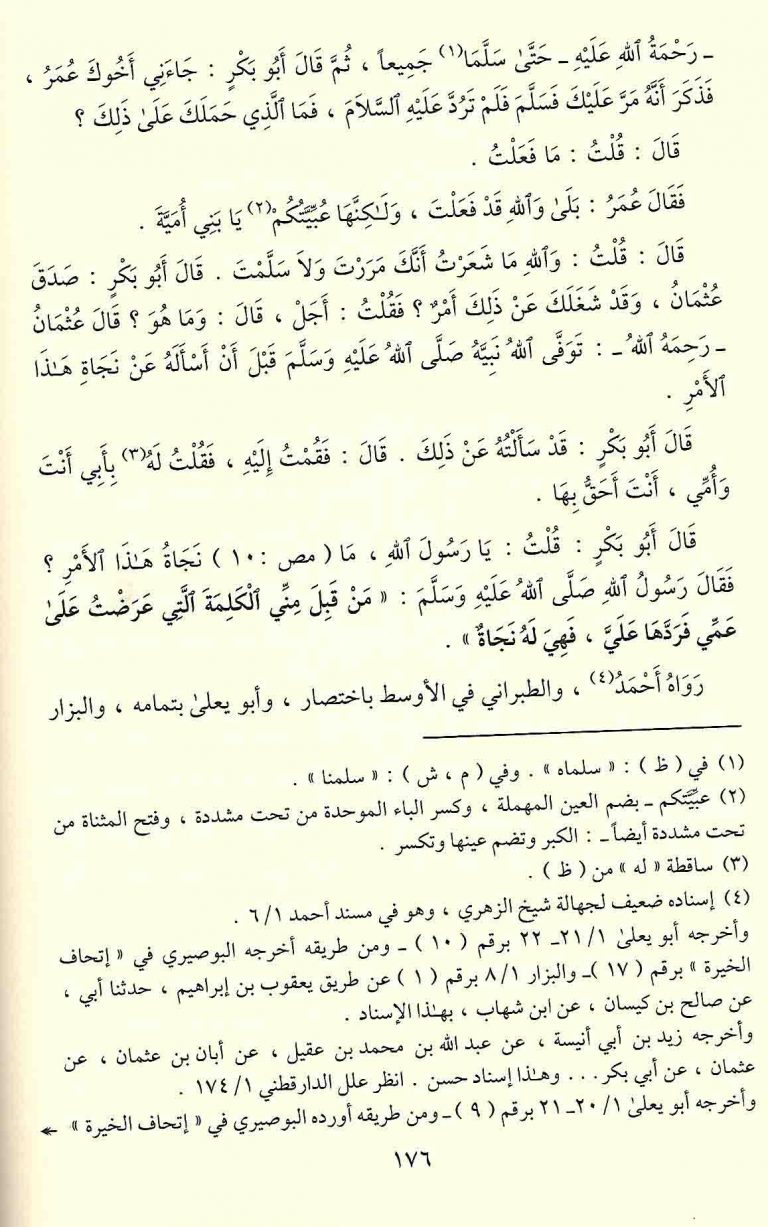 ـ رَحْمَةُ ٱللهِ عَلَيْهِ ـ حَتَّىٰ سَلَّمَا(١) جَمِيعاً ، ثُمَّ قَالَ أَبُو بَكْرٍ : جَاءَنِي أَخُوكَ عُمَرُ ،
فَذَكَرَ أَنَّهُ مَرَّ عَلَيْكَ فَسَلَّمَ فَلَمْ تَرُدَّ عَلَيْهِ ٱلسَّلاَمَ ، فَمَا ٱلَّذِي حَمَلَكَ عَلَىٰ ذَلِكَ ؟
قَالَ : قُلْتُ : مَا فَعَلْتُ .
فَقَالَ عُمَرُ : بَلَىٰ وَٱللهِ قَدْ فَعَلْتَ ، وَلَـٰكِنَّهَا عُبِّيَّتُكُمْ(٢) يَا بَنِي أُمَيَّةَ .
قَالَ : قُلْتُ : وَٱللهِ مَا شَعَرْتُ أَنَّكَ مَرَرْتَ وَلاَ سَلَّمْتَ . قَالَ أَبُو بَكْرٍ : صَدَقَ
عُثْمَانُ ، وَقَدْ شَغَلَكَ عَنْ ذَلِكَ أَمْرٌ ؟ فَقُلْتُ : أَجَلْ ، قَالَ : وَمَا هُوَ ؟ قَالَ عُثْمَانُ
ـ رَحِمَهُ ٱللهُ ـ : تَوَفَّى ٱللهُ نَبِيَّهُ صَلَّى ٱللهُ عَلَيْهِ وَسَلَّمَ قَبْلَ أَنْ أَسْأَلَهُ عَنْ نَجَاةِ هَـٰذَا
ٱلأَمْرِ .
قَالَ أَبُو بَكْرٍ : قَدْ سَأَلْتُهُ عَنْ ذَلِكَ . قَالَ : فَقُمْتُ إِلَيْهِ ، فَقُلْتُ لَهُ(٣) بِأَبِي أَنْتَ
وَأُمِّي ، أَنْتَ أَحَقُّ بِهَا .
قَالَ أَبُو بَكْرٍ : قُلْتُ : يَا رَسُولَ ٱللهِ ، مَا ( مص : ١٠ ) نَجَاةُ هَـٰذَا ٱلأَمْرِ ؟
فَقَالَ رَسُولُ ٱللهِ صَلَّى ٱللهُ عَلَيْهِ وَسَلَّمَ : « مَنْ قَبِلَ مِنِّي ٱلْكَلِمَةَ ٱلَّتِي عَرَضْتُ عَلَىٰ
عَمِّي فَرَدَّهَا عَلَيَّ ، فَهِيَ لَهُ نَجَاةٌ » .
رَوَاهُ أَحْمَدُ(٤) ، والطبراني في الأوسط باختصار ، وأبو يعلىٰ بتمامه ، والبزار
(١) في ( ظ ) : « سلماه » . وفي ( م ، ش ) : « سلمنا » .
(٢) عبيَّتكم ـ بضم العين المهملة ، وكسر الباء الموحدة من تحت مشددة ، وفتح المثناة من
تحت مشددة أيضاً ـ : الكبر وتضم عينها وتكسر .
(٣) ساقطة « له » من ( ظ ) .
(٤) إسناده ضعيف لجهالة شيخ الزهري ، وهو في مسند أحمد ١/ ٦ .
وأخرجه أبو يعلىٰ ١/ ٢١ـ ٢٢ برقم ( ١٠ ) ـ ومن طريقه أخرجه البوصيري في « إتحاف
الخيرة » برقم ( ١٧ ) ـ والبزار ١/ ٨ برقم ( ١ ) عن طريق يعقوب بن إبراهيم ، حدثنا أبي ،
عن صالح بن كيسان ، عن ابن شهاب ، بهـٰذا الإسناد .
وأخرجه زيد بن أبي أنيسة ، عن عبد الله بن محمد بن عقيل ، عن أبان بن عثمان ، عن
عثمان ، عن أبي بكر . . . وهـٰذا إسناد حسن . انظر علل الدارقطني ١/ ١٧٤ .
وأخرجه أبو يعلىٰ ١/ ٢٠ـ ٢١ برقم ( ٩ ) ـ ومن طريقه أورده البوصيري في « إتحاف الخيرة » ←
١٧٦